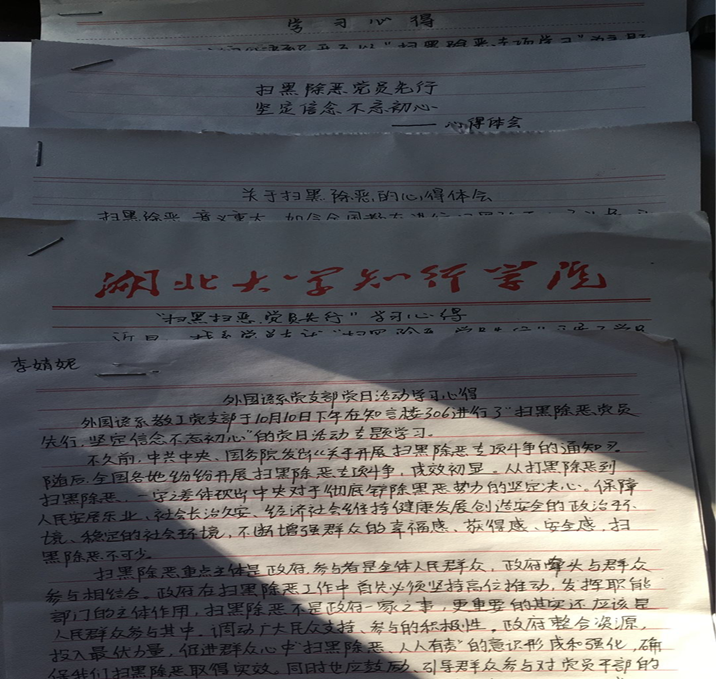 学习心得
扫黑除恶党员先行
坚定信念不忘初心
——心得体会
关于扫黑除恶的心得体会
扫黑除恶,意义重大
湖北大学知行学院
"扫黑扫恶,党员先行"学习心得
近日
李婧妮
外国语系党支部党日活动学习心得
外国语系教工党支部于10月10日下午在知言楼306进行了"扫黑除恶党员
先行,坚定信念不忘初心"的党日活动专题学习。
不久前,中共中央、国务院发出《关于开展扫黑除恶专项斗争的通知》。
随后,全国各地纷纷开展扫黑除恶专项斗争,成效初显。从打黑除恶到
扫黑除恶,一字之差体现出中央对于彻底铲除黑恶势力的坚定决心。保障
人民安居乐业,社会长治久安,经济社会维持健康发展创造安全的政治环
境、稳定的社会环境,不断增强群众的幸福感、获得感、安全感,扫
黑除恶不可少。
扫黑除恶重点主体是政府,参与者是全体人民群众,政府牵头与群众
参与相结合。政府在扫黑除恶工作中首先必须坚持高位推动,发挥职能
部门的主体作用,扫黑除恶不是政府一家之事,更重要的其实还应该是
人民群众参与其中,调动广大民众支持、参与的积极性。政府整合资源,
投入最优力量,促进群众心中"扫黑除恶、人人有责"的意识形成和强化,确
保我们扫黑除恶取得实效。同时也应鼓励、引导群众参与对党员干部的